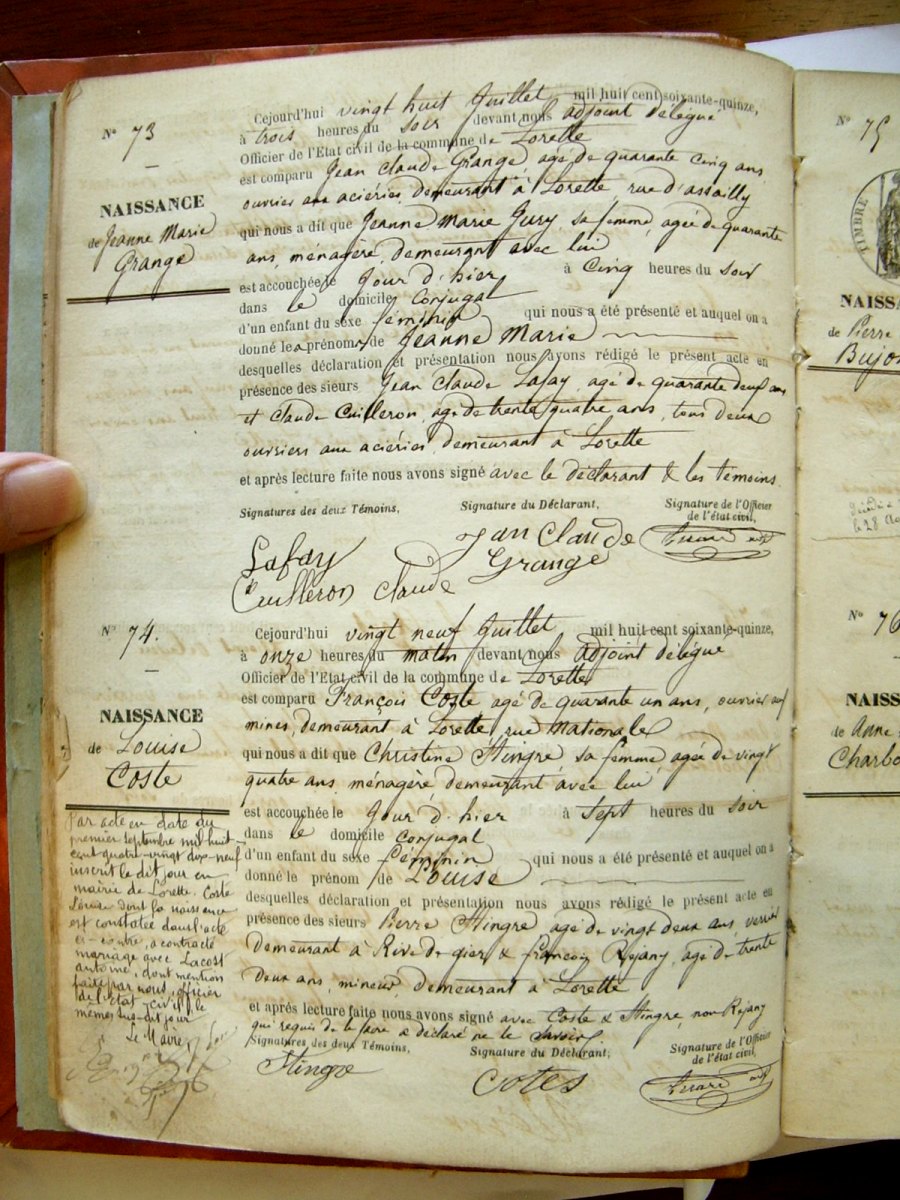 N° 73
NAISSANCE
de Jeanne Marie
Grange
Cejourd'hui vingt huit Juillet mil huit cent soixante-quinze,
à trois heures du soir devant nous adjoint délégué
Officier de l'Etat civil de la commune de Lorette
est comparu Jean Claude Grange, agé de quarante cinq ans
ouvrier aux acieries, demeurant à Lorette rue d'assailly
qui nous a dit que Jeanne Marie Jury, sa femme, agée de quarante
ans, ménagère, demeurant avec lui
est accouchée le Jour d'hier à Cinq heures du soir
dans le domicile Conjugal
d'un enfant du sexe féminin qui nous a été présenté et auquel on a
donné les prénoms de Jeanne Marie
desquelles déclaration et présentation nous avons rédigé le présent acte en
présence des sieurs Jean Claude Lafay, agé de quarante deux ans
et Claude Cuilleron, agé de trente quatre ans, tous deux
ouvriers aux aciéries, demeurant à Lorette
et après lecture faite nous avons signé avec le déclarant & les témoins
Signatures des deux Témoins, Signature du Déclarant, Signature de l'Officier
de l'état civil,
Lafay Jean Claude
Cuilleron Claude Grange
N° 74.
NAISSANCE
de Louise
Coste
Cejourd'hui vingt neuf Juillet mil huit cent soixante-quinze,
à onze heures du matin devant nous adjoint délégué
Officier de l'Etat civil de la commune de Lorette
est comparu François Coste agé de quarante un ans, ouvrier aux
mines, demeurant à Lorette, rue Nationale
qui nous a dit que Christine Stingre, sa femme, agée de vingt
quatre ans, ménagère, demeurant avec lui
est accouchée le Jour d'hier à Sept heures du soir
dans le domicile Conjugal
d'un enfant du sexe féminin qui nous a été présenté et auquel on a
donné le prénom de Louise
desquelles déclaration et présentation nous avons rédigé le présent acte en
présence des sieurs Pierre Stingre agé de vingt deux ans, verrier
demeurant à Rive de gier & francois Rejany, agé de trente
deux ans, mineur, demeurant à Lorette
et après lecture faite nous avons signé avec Coste & Stingre, non Rejany
qui requis de le faire a déclaré ne le savoir.
Signatures des deux Témoins, Signature du Déclarant, Signature de l'Officier
de l'état civil,
Stingre Cotes
Par acte en date du
premier septembre mil huit-
cent quatre-vingt dix-neuf
inscrit le dit jour en
mairie de Lorette. Coste
Louise dont la naissance
est constatée dans l'acte
ci-contre, a contracté
mariage avec Lacost
antoine, dont mention
faite par nous, officier
de l'état-civil le
même sus-dit jour
Le Maire
N° 75
TIMBRE
NAISSA
de Pierre
Bujo
N° 76
NAISS
de Anne
Charbo